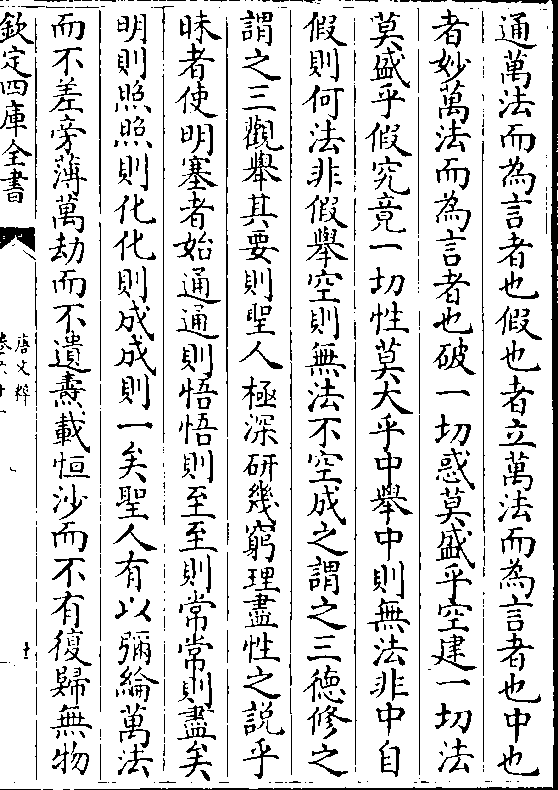 通萬法而為言者也假也者立萬法而為言者也中也
者妙萬法而為言者也破一切惑莫盛乎空建一切法
莫盛乎假究竟一切性莫大乎中舉中則無法非中自
假則何法非假舉空則無法不空成之謂之三德修之
謂之三觀舉其要則聖人極深研幾窮理盡性之説乎
昧者使明塞者始通通則悟悟則至至則常常則盡矣
明則照照則化化則成成則一矣聖人有以彌綸萬法
而不差旁薄萬劫而不遺燾載恒沙而不有復歸無物
欽定四庫全書
唐文粹